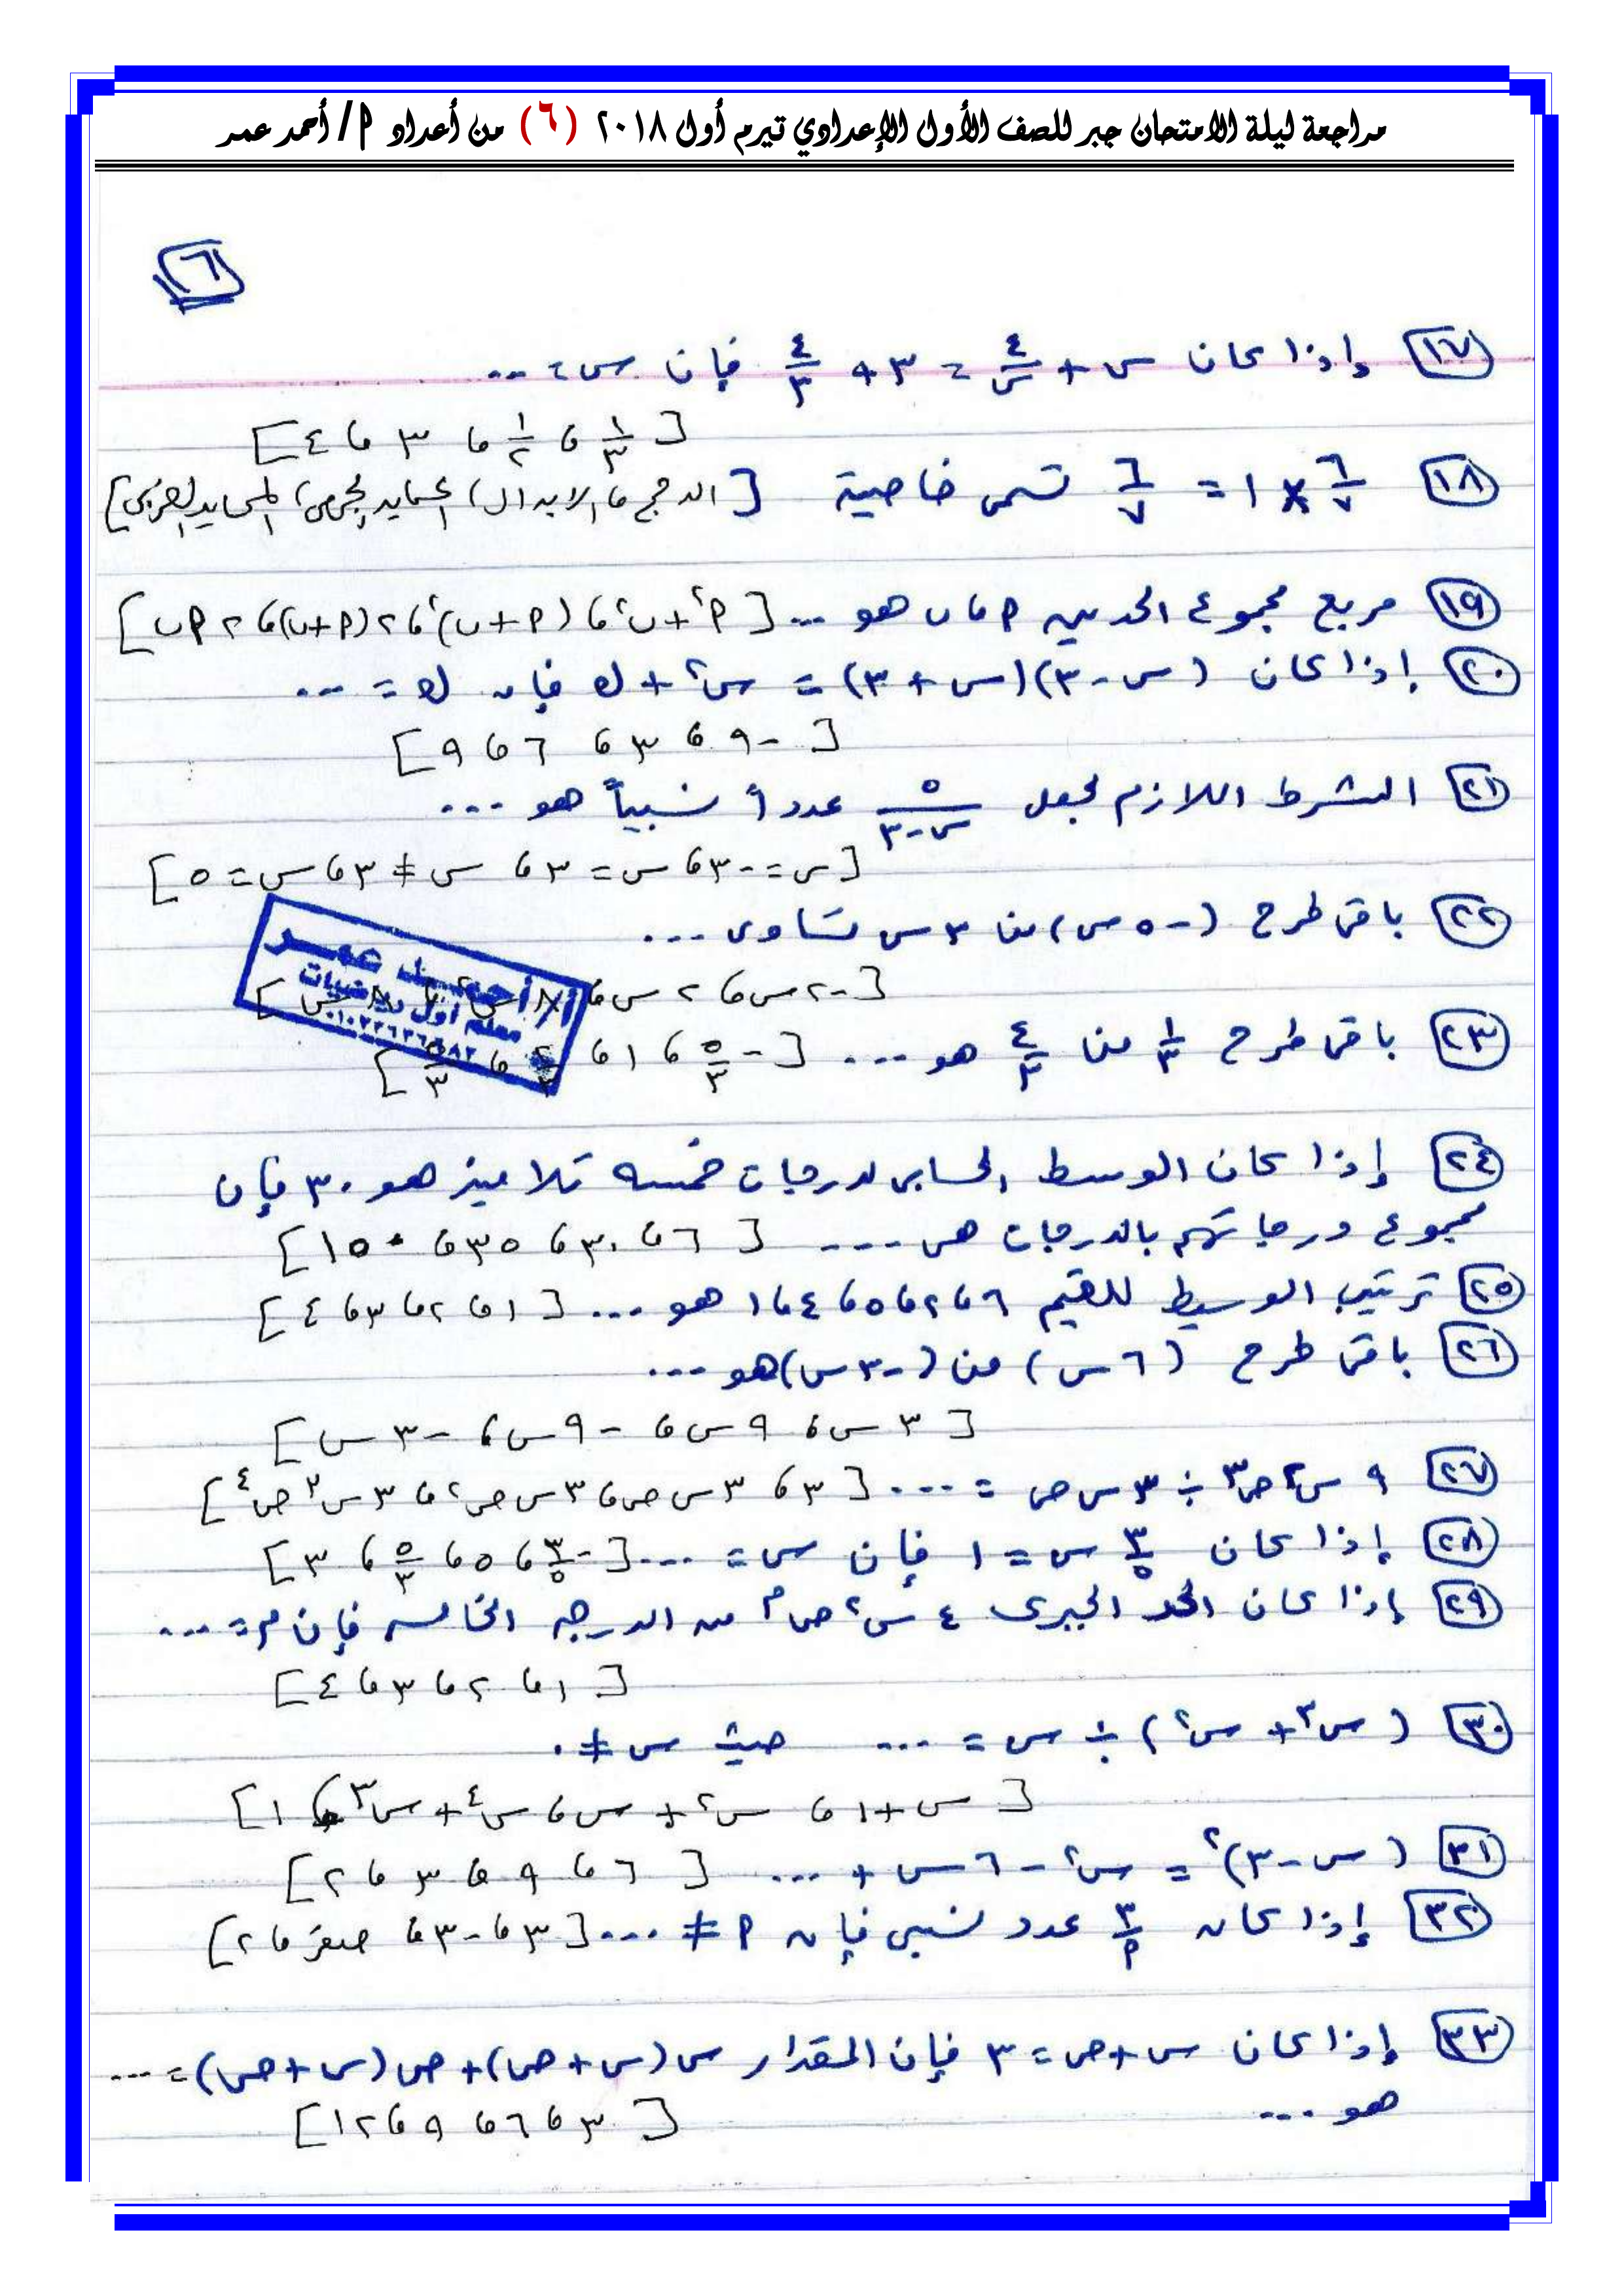 مراجعة ليلة الامتحان جبر للصف الأول الإعدادي تيرم أول ٢٠١٨ (٦) من أعداد م/ أحمد عمر
٦
١٧ إذا كان س + ٤/س = ٣ + ٤/٣ فإن س = ...
[١/٣ ، ١/٢ ، ٣ ، ٤]
١٨ ٦/٧ × ١ = ٦/٧ تسمى خاصية [الدمج ، الابدال ، المحايد الجمعى ، المحايد الضربى]
١٩ مربع مجموع الحدين م ، ب هو ... [م² + ب² ، (م + ب)² ، ٢(م + ب) ، ٢ م ب]
٢٠ إذا كان (س - ٣)(س + ٣) = س² + ك فإن ك = ...
[-٩ ، ٣ ، ٦ ، ٩]
٢١ الشرط اللازم لجعل ٥/(س - ٣) عدداً نسبياً هو ...
[س = -٣ ، س = ٣ ، س ≠ ٣ ، س = ٥]
٢٢ باقى طرح (-٥ س) من ٣ س تساوى ...
[-٢ س ، ٢ س ،
أ/ أحمد عمر
معلم أول رياضيات
٢٣ باقى طرح ١/٣ من ٤/٣ هو ... [-٥/٣ ، ١ ، ، ٥/٣]
٢٤ إذا كان الوسط الحسابى لدرجات خمسه تلاميذ هو ٣٠ فإن
مجموع درجاتهم بالدرجات هى ... [٦ ، ٣٠ ، ٣٥ ، ١٥٠]
٢٥ ترتيب الوسيط للقيم ٩ ، ٢ ، ٥ ، ٤ ، ١ هو ... [١ ، ٢ ، ٣ ، ٤]
٢٦ باقى طرح (٦ س) من (-٣ س) هو ...
[٣ س ، ٩ س ، -٩ س ، -٣ س]
٢٧ ٩ س² ص³ ÷ ٣ س ص = ... [٣ ، ٣ س ص ، ٣ س ص² ، ٣ س³ ص⁴]
٢٨ إذا كان ٣/٥ س = ١ فإن س = ... [-٣/٥ ، ٥ ، ٥/٣ ، ٣]
٢٩ إذا كان الحد الجبرى ٤ س² ص^م من الدرجه الخامسه فإن م = ...
[١ ، ٢ ، ٣ ، ٤]
٣٠ (س³ + س²) ÷ س = ... حيث س ≠ ٠
[س + ١ ، س² + س ، س⁴ + س³ ، ١]
٣١ (س - ٣)² = س² - ٦ س + ... [٦ ، ٩ ، ٣ ، ٢]
٣٢ إذا كان ٣/م عدد نسبى فإن م ≠ ... [٣ ، -٣ ، صفر ، ٢]
٣٣ إذا كان س + ص = ٣ فإن المقدار س (س + ص) + ص (س + ص) = ...
هو ...
[٣ ، ٦ ، ٩ ، ١٢]